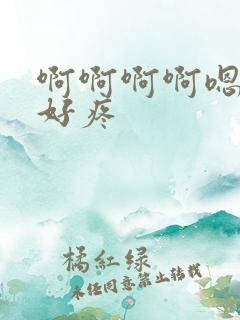 啊啊啊啊嗯
好疼
橘紅绿
未经同意禁止转载